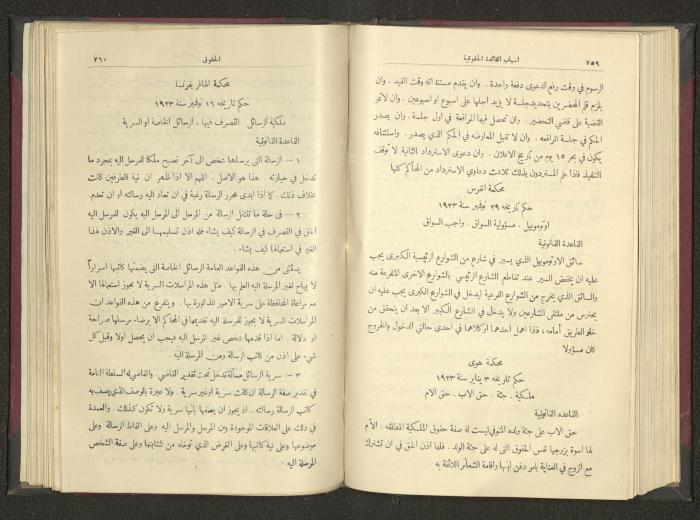 ٧٥٩
اسباب الفائدة الحقوقية
الرسوم في وقت رفع الدعوى دفعة واحدة . وان يقدم مستنداته وقت القيد . وان
يلزم قلم المحضرين بتحديد جلسة لا يزيد اجلها على اسبوع او اسبوعين . وان لا تمر
القضية على قاضي التحضير . وان تحصل فيها المرافعة في اول جلسة . وان يصدر
الحكم في جلسة المرافعه . وان لا تقبل المعارضه في الحكم الذي يصدر . واستئنافه
يكون في بحر ١٥ يوم من تاريخ الاعلان . وان دعوى الاسترداد الثانية لا توقف
التنفيذ فاذا علم المستردون بذلك تلاشت دعاوي الاسترداد من المحاكم كلها
محكمة انفرس
حكم تاريخه ٢٩ نوفمبر سنة ١٩٢٣
اوتوموبيل . مسؤولية السواق . واجب السواق
القاعدة القانونية
سائق الاوتوموبيل الذي يسير في شارع من الشوارع الرئيسية الكبرى يجب
عليه ان يخفض السير عند تقاطع الشارع الرئيسي بالشوارع الاخرى المتفرعة منه
والسائق الذي يخرج من الشوارع الفرعية ليدخل في الشوارع الكبرى يجب عليه ان
يحترس من ملتقى الشارعين ولا يدخل في الشارع الكبير الا بعد ان يتحقق من
خلو الطريق أمامه ، فاذا اهمل احدهما او كلاهما في احدى حالتي الدخول والخروج
كان مسؤولا
محكمة هوى
حكم تاريخه ٣ يناير سنة ١٩٢٣
ملكية . جثة . حق الاب . حق الام
القاعده القانونية
حق الاب على جثة ولده المتوفي ليست له صفة حقوق الملكية المطلقه . الأم
لها اسوة بزوجها نفس الحقوق التي له على جثة الولد . فلها اذن الحق في ان تشترك
مع الزوج في العناية بامر دفن ابنها واقامة الشعائر اللائقة به
الحقوق
٧٦٠
محكمة الهافر بفرنسا
حكم تاريخه ١٦ نوفمبر سنة ١٩٢٣
ملكية الرسائل . التصرف فيها . الرسائل الخاصة او السرية
القاعدة القانونية
١ — الرسالة التي يرسلها شخص الى آخر تصبح ملكا للمرسل اليه بمجرد ما
تدخل في حيازته . هذا هو الاصل . اللهم الا اذا ظهر ان نية الطرفين كانت
بخلاف ذلك . كما اذا ابدى محرر الرسالة رغبة في ان تعاد اليه رسالته او ان تعدم
٢ — في حالة ما تنتقل الرسالة من المرسل الى المرسل اليه يكون للمرسل اليه
الحق في التصرف في الرسالة كيف يشاء فله اذن تسليمها الى الغير والاذن لهذا
الغير في استعمالها كيف يشاء .
يستثنى من هذه القواعد العامة الرسائل الخاصة التي يضمنها كاتبها اسراراً
لا يباح لغير المرسلة اليه العلم بها . مثل هذه المراسلات السرية لا يجوز استعمالها الا
مع مراعاة المحافظة على سرية الامور المذكورة بها . ويتفرع من هذه القواعد ان
المراسلات السرية لا يجوز للمرسلة اليه تقديمها في المحاكم الا برضاء مرسلها صراحة
او دلالة . اما اذا قدمها شخص غير المرسل اليه فيجب ان يحصل اولا وقبل كل
شيء على اذن من كاتب الرسالة ومن المرسلة اليه .
٣ — سرية الرسائل مسألة تدخل تحت تقدير القاضي . والقاضي له السلطة التامة
في تقدير صفة الرسالة ان كانت سرية او غير سرية . ولا عبرة بالوصف الذي يصف به
كاتب الرسالة رسالته . اذ يجوز ان يصفها بانها سرية ولا تكون كذلك . والعمدة
في ذلك على العلاقات الموجودة بين المرسل والمرسل اليه . وعلى الفاظ الرسالة وعلى
موضوعها وعلى نية كاتبها وعلى الغرض الذي توخاه من كتابتها وعلى صفة الشخص
المرسلة اليه .